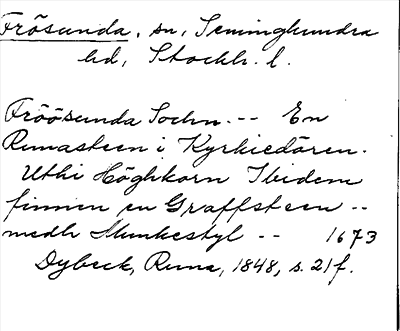 Frösunda, sn, Seminghundra
hd, Stockh. l.
Fröösunda Sochn. -- En
Runasteen i Kyrkiedören.
Uthi Höghkorn Ibidem
finnen en Graffsteen --
medh Munkestyl -- 1673
Dybeck, Runa, 1848, s. 21 f.